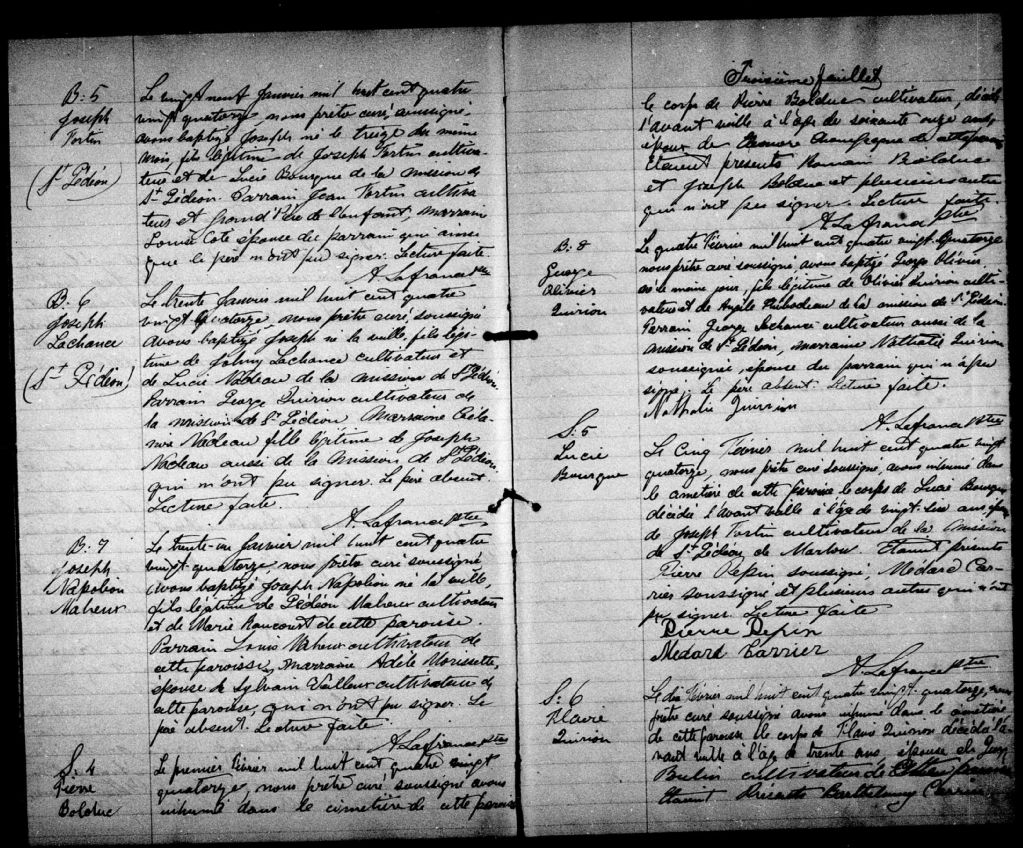 B: 5
Joseph
Fortin
(St Pédéon)
Le vingt neuf Janvier mil huit cent quatre
vingt quatorze, nous prêtre curé, soussigné,
avons baptizé Joseph né le treize du même
mois, fils légitime de Joseph Fortin cultiva-
teur et de Lucie Bourque de la mission de
St. Pédéon. Parrain Jean Fortin cultiva-
teur et grand Père de l'enfant, marraine
Louise Coté épouse du parrain qui ainsi
que le père n'ont pu signer. Lecture faite.
A Lafrance ptre
B. 6
Joseph
Lachance
(St Pédéon)
Le trente Janvier mil huit cent quatre
vingt quatorze, nous prêtre curé soussigné
avons baptizé Joseph né la veille, fils légi-
time de Johny Lachance cultivateur et
de Lucie Nadeau de la mission de St Pédéon
Parrain George Quirion cultivateur de
la mission de St Pédéon Marraine
Nadeau fille légitime de Joseph
Nadeau aussi de la mission de St Pédéon,
qui n'ont pu signer. Le père absent.
Lecture faite.
A. Lafrance ptre
B: 7
Joseph
Napoléon
Maheux
Le trente-un Janvier mil huit cent quatre
vingt quatorze, nous prêtre curé soussigné
avons baptizé Joseph Napoléon né la veille,
fils légitime de Pédéon Maheux cultivateur
et de Marie Rancourt de cette paroisse.
Parrain Louis Maheux cultivateur de
cette paroisse, marraine Adèle Morissette,
épouse de Sylvain Veilleux cultivateur de
cette paroisse, qui n'ont pu signer. Le
père absent. Lecture faite.
A Lafrance ptre
S. 4
Pierre
Bolduc
Le premier Février mil huit cent quatre vingt
quatorze, nous prêtre curé soussigné avons
inhumé dans le cimetière de cette paroisse
Troisième feuillet
le corps de Pierre Bolduc cultivateur, décédé
l'avant veille à l'âge de soixante onze ans,
époux de Champagne de
Etaient présents Romain Bolduc
et Joseph Bolduc et plusieurs autres
qui n'ont pu signer. Lecture faite.
A Lafrance ptre
B: 8
George
Olivier
Quirion
Le quatre Février mil huit cent quatre vingt. Quatorze
nous prêtre curé soussigné, avons baptizé George Olivier
né le même jour, fils légitime de Olivier Quirion culti-
vateur et de Angèle Thibodeau de la mission de St Pédéon.
Parrain George Lachance cultivateur aussi de la
mission de St Pédéon, marraine Nathalie Quirion
soussignée, épouse du parrain qui n'a pu
signer. Le père absent. Lecture faite.
Nathalie Quirion
A Lafrance ptre
S: 5
Lucie
Bourque
Le Cinq Février mil huit cent quatre vingt
quatorze, nous prêtre curé soussigné, avons inhumé dans
le cimetière de cette paroisse le corps de Lucie Bourque
décédée l'avant veille à l'âge de vingt-six ans,
de Joseph Fortin cultivateur de la mission
de St Pédéon de Marlow. Etaient présents
Pierre Pepin soussigné, Médard Car-
rier soussigné et plusieurs autres qui n'ont
pu signer. Lecture faite
Pierre Pepin
Médard Carrier
A Lafrance ptre
S: 6
Quirion
Le dix Février mil huit cent quatre vingt quatorze, nous
prêtre curé soussigné avons inhumé dans le cimetière
de cette paroisse le corps de Quirion décédée l'a-
vant veille à l'âge de trente ans, épouse de George
Bulin cultivateur de
Etaient Présents Barthélemy Carrier